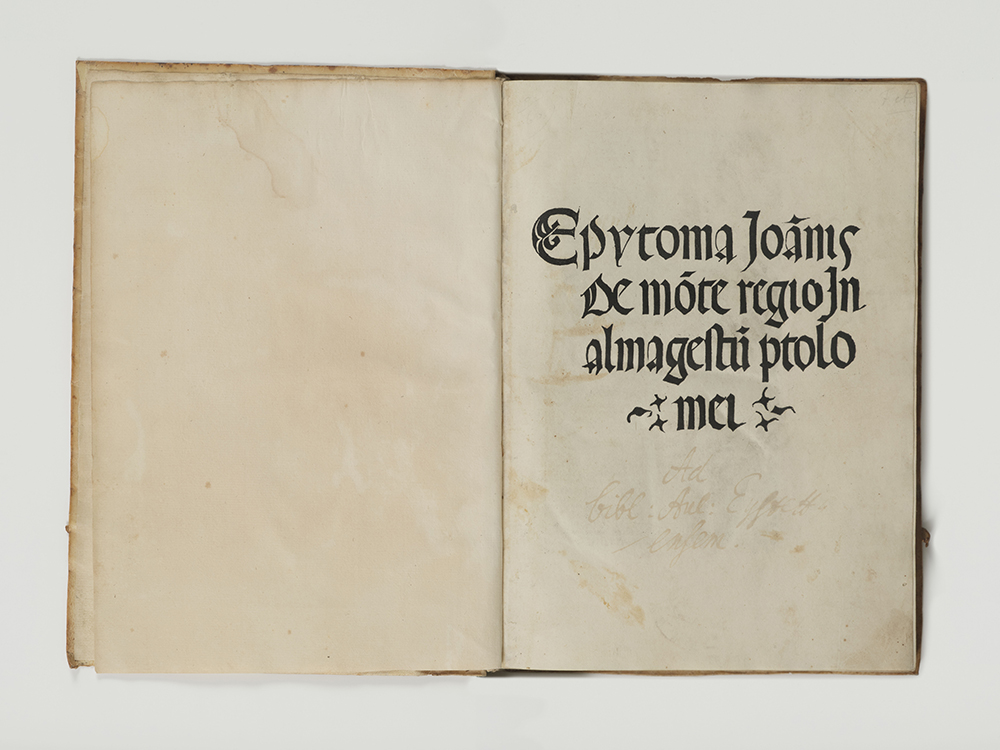 Epytoma Joãnis
De mõte regio In
almagestũ ptolo
mei
Ad
bibl: Aul: Eystett
ensem.